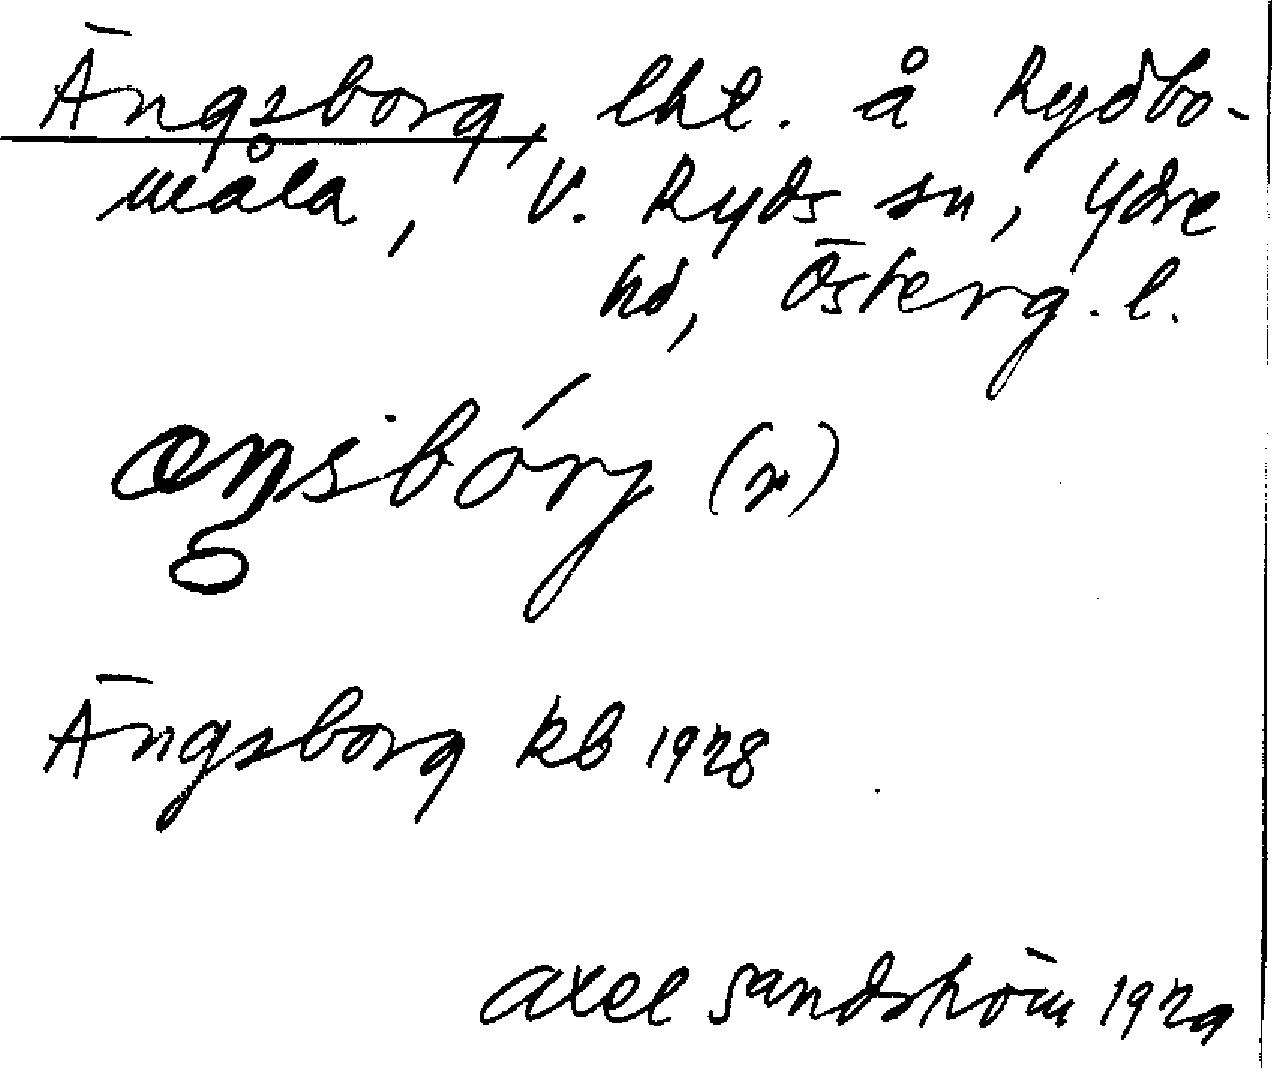 Ängsborg, lht. å Rydbo-
måla, V. Ryds sn, Ydre
hd, Österg. l.
(r)
Ängsborg kb 1928
Axel Sandström 1929